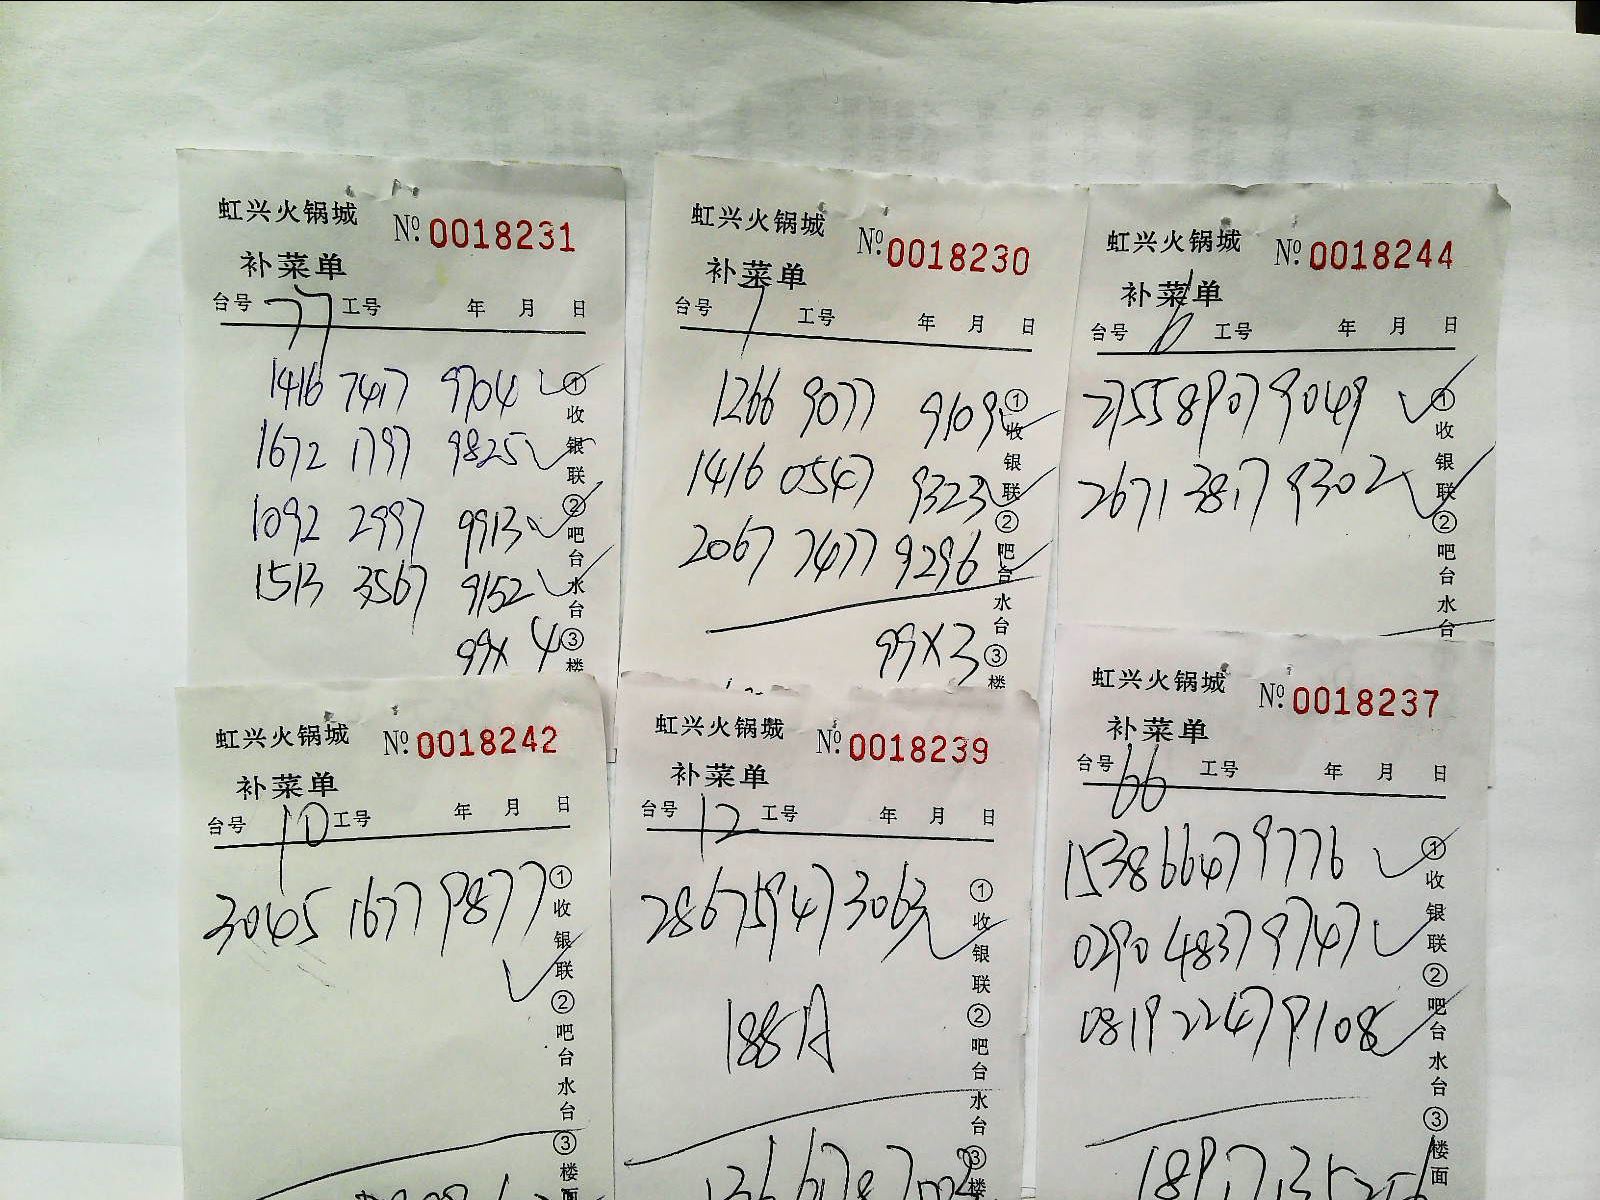 虹兴火锅城 №0018231
补菜单
台号 77 工号 年 月 日
1416 7417 9704
1672 1797 9825
1092 2997 9913
1513 3567 9152
99×4
①收银联②吧台水台③楼
虹兴火锅城 №0018230
补菜单
台号 7 工号 年 月 日
1266 9077 9109
1416 0547 9323
2067 7477 9296
99×3
①收银联②吧台水台③楼
虹兴火锅城 №0018244
补菜单
台号 工号 年 月 日
2755 8907 9049
2671 3817 9302
①收银联②吧台水台
虹兴火锅城 №0018242
补菜单
台号 10 工号 年 月 日
3045 1677 9877
①收银联②吧台水台③楼面
虹兴火锅城 №0018239
补菜单
台号 12 工号 年 月 日
2867 5947 3063
188A
①收银联②吧台水台③楼
虹兴火锅城 №0018237
补菜单
台号 66 工号 年 月 日
1538 6647 9776
0290 4837 9747
0819 2247 9108
①收银联②吧台水台③楼面